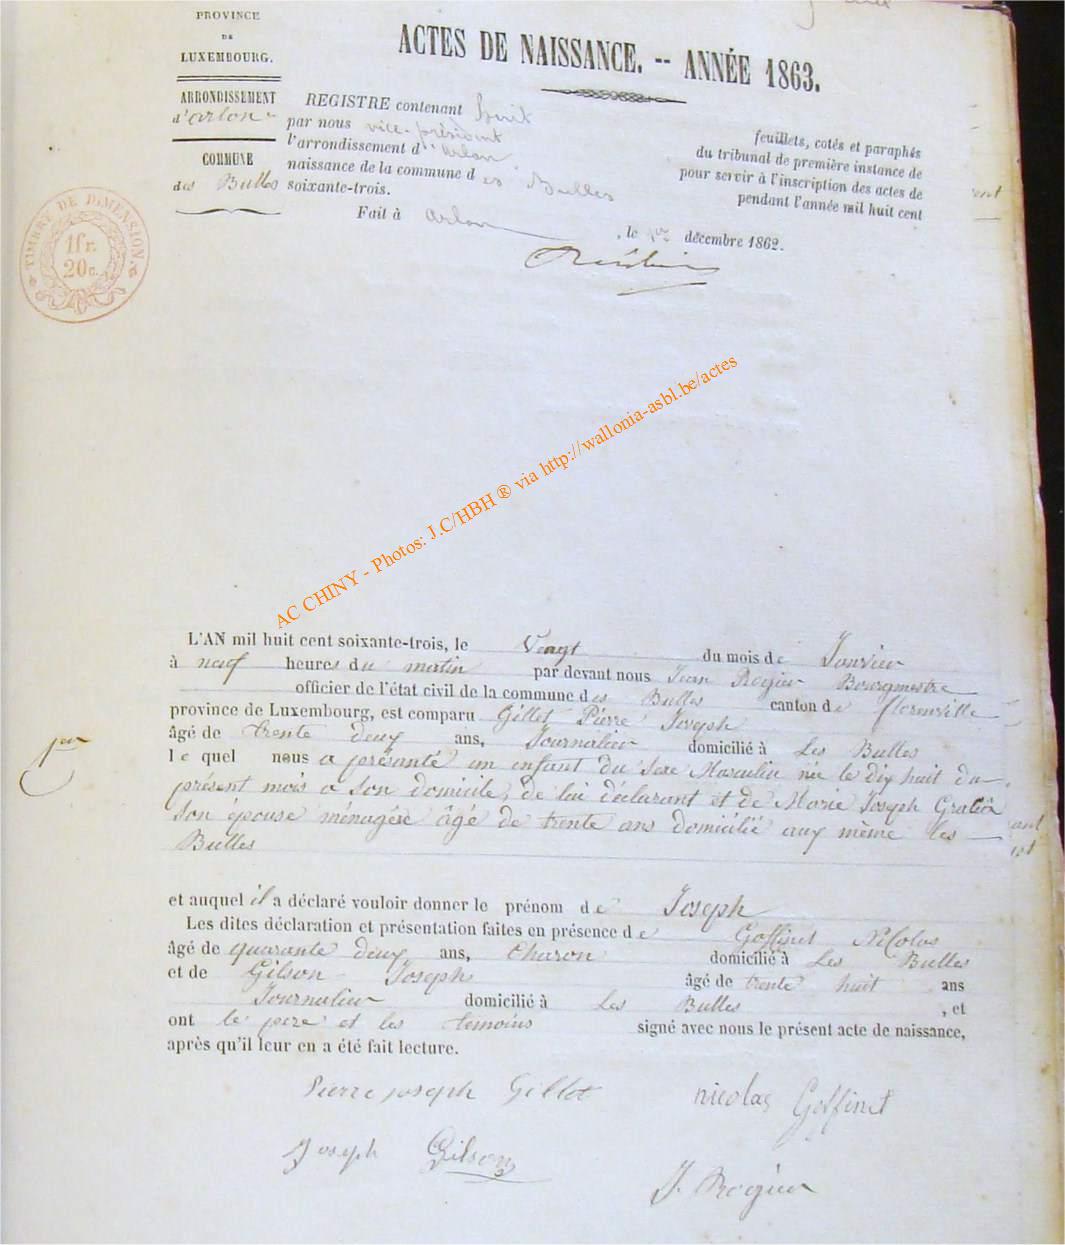 PROVINCE
DE
LUXEMBOURG.
ARRONDISSEMENT
d'Arlon
COMMUNE
des Bulles
TIMBRE DE DIMENSION.
1fr.
20c.
ACTES DE NAISSANCE. -- ANNÉE 1863.
REGISTRE contenant huit feuillets, cotés et paraphés
par nous vice-président du tribunal de première instance de
l'arrondissement d'Arlon pour servir à l'inscription des actes de
naissance de la commune des Bulles pendant l'année mil huit cent
soixante-trois.
Fait à Arlon, le 1er décembre 1862.
AC CHINY - Photos: J.C/HBH ® via http://wallonia-asbl.be/actes
L'AN mil huit cent soixante-trois, le Vingt du mois de Janvier
à neuf heures du matin par devant nous Jean Rogier Bourgmestre
officier de l'état civil de la commune des Bulles canton de florenville
province de Luxembourg, est comparu Gillet Pierre Joseph
âgé de trente deux ans, Journalier domicilié à Les Bulles
le quel nous a présanté un enfant du Sexe Masculin née le dix huit du
présent mois a son domicile, de lui déclarant et de Marie Joseph
son épouse ménagére âgé de trente ans domicilié aux même les
Bulles
et auquel il a déclaré vouloir donner le prénom de Joseph
Les dites déclaration et présentation faites en présence de Goffinet Nicolas
âgé de quarante deux ans, Charon domicilié à Les Bulles
et de Gilson Joseph âgé de trente huit ans
Journalier domicilié à Les Bulles, et
ont le pere et les temoins signé avec nous le présent acte de naissance,
après qu'il leur en a été fait lecture.
Pierre joseph Gillet nicolas Goffinet
Joseph Gilson
J. Rogier